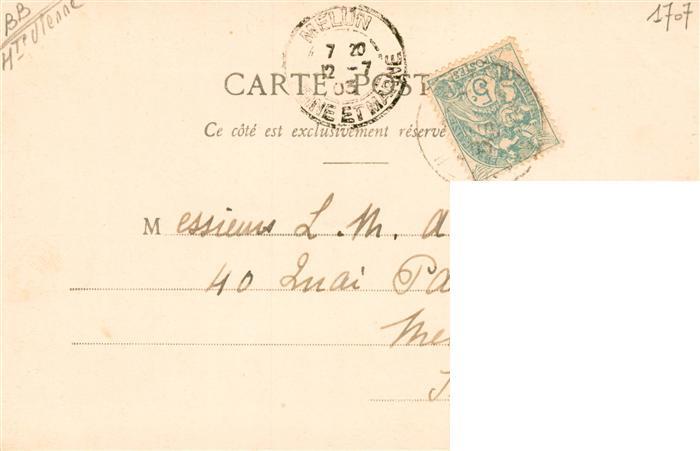 BB
Hte Vienne
1707
MELUN
7 20
12 -7
03
NE ET MARNE
CARTE POST
POSTES
5
Ce côté est exclusivement réservé
Messieurs L. M. A
40 Quai Pa
Me